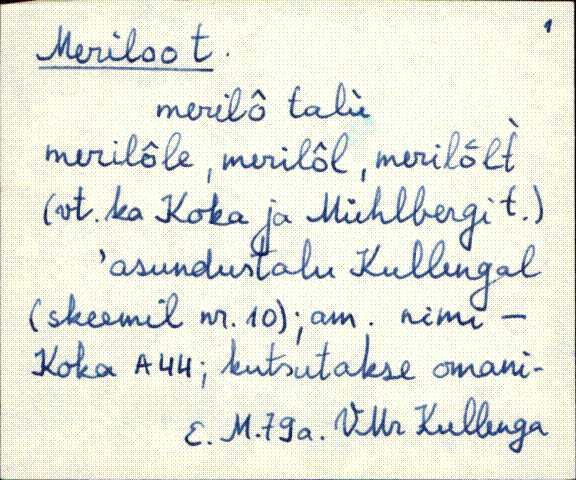 1
Meriloo t.
merilô talù
merilôle, merilôl, merilôĺt̀
(vt. ka Koka ja Mühlbergi t.)
'asundustalu Kullengal
(skeemil nr. 10); am. nimi –
Koka A44; kutsutakse omani-
E. M. 79a. VMr Kullenga